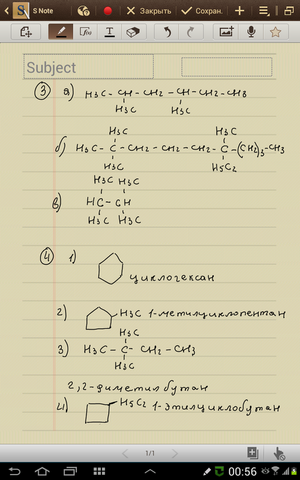 S Note
Закрыть
Сохран.
Subject
3 а) H₃C - CH - CH₂ - CH - CH₂ - CH₃
H₃C H₃C
H₃C H₃C
б) H₃C - C - CH₂ - CH₂ - CH₂ - C - (CH₂)₃ - CH₃
H₃C H₅C₂
H₃C H₃C
в) HC - CH
H₃C H₃C
4 1)
циклогексан
2) H₃C 1-метилциклопентан
H₃C
3) H₃C - C - CH₂ - CH₃
H₃C
2,2-диметил бутан
4) H₅C₂ 1-этилциклобутан
1/1
00:56